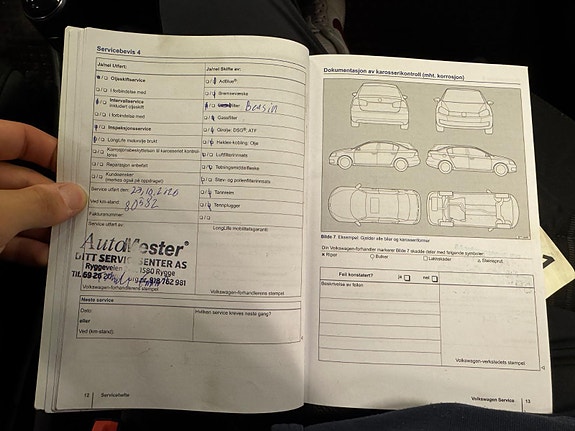 Servicebevis 4
Ja/nei Utført:
Oljeskiftservice
I forbindelse med
Intervallservice
inkludert oljeskift
I forbindelse med
Inspeksjonsservice
LongLife motorolje brukt
Korrosjonsbeskyttelsen til karosseriet kontrol-
leres
Reparasjon anbefalt
Kundeønsker
(merkes også på oppdraget)
Service utført den: 29.10.2020
Ved km-stand: 80582
Fakturanummer:
Service utført av:
AutoMester®
DITT SERVICESENTER AS
Ryggeveien 1580 Rygge
Tlf. 69 26 762 981
Volkswagen-forhandlerens stempel
Neste service
Dato:
eller
Ved (km-stand):
Ja/nei Skifte av:
AdBlue®
Bremsevæske
Bensin
Gassfilter
Girolje: DSG®, ATF
Haldex-kobling: Olje
Luftfilterinnsats
Tetningsmiddelflaske
Støv- og pollenfilterinnsats
Tannreim
Tennplugger
LongLife mobilitetsgaranti
Volkswagen-forhandlerens stempel
Hvilken service kreves neste gang?
12 Servicehefte
Dokumentasjon av karosserikontroll (mht. korrosjon)
Bilde 7 Eksempel: Gjelder alle biler og karosseriformer
Din Volkswagen-forhandler markerer Bilde 7 skadde deler med følgende symboler:
× Riper ○ Bulker □ Lakkskader △ Steinsprut.
Feil konstatert? ja nei
Beskrivelse av feilen:
Volkswagen-verkstedets stempel
Volkswagen Service 13